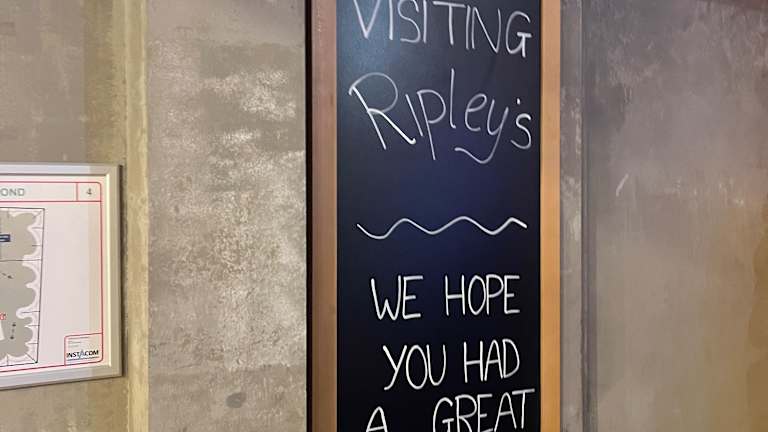 VISITING
Ripley's
WE HOPE
YOU HAD
A GREAT
OND 4
INSTACOM